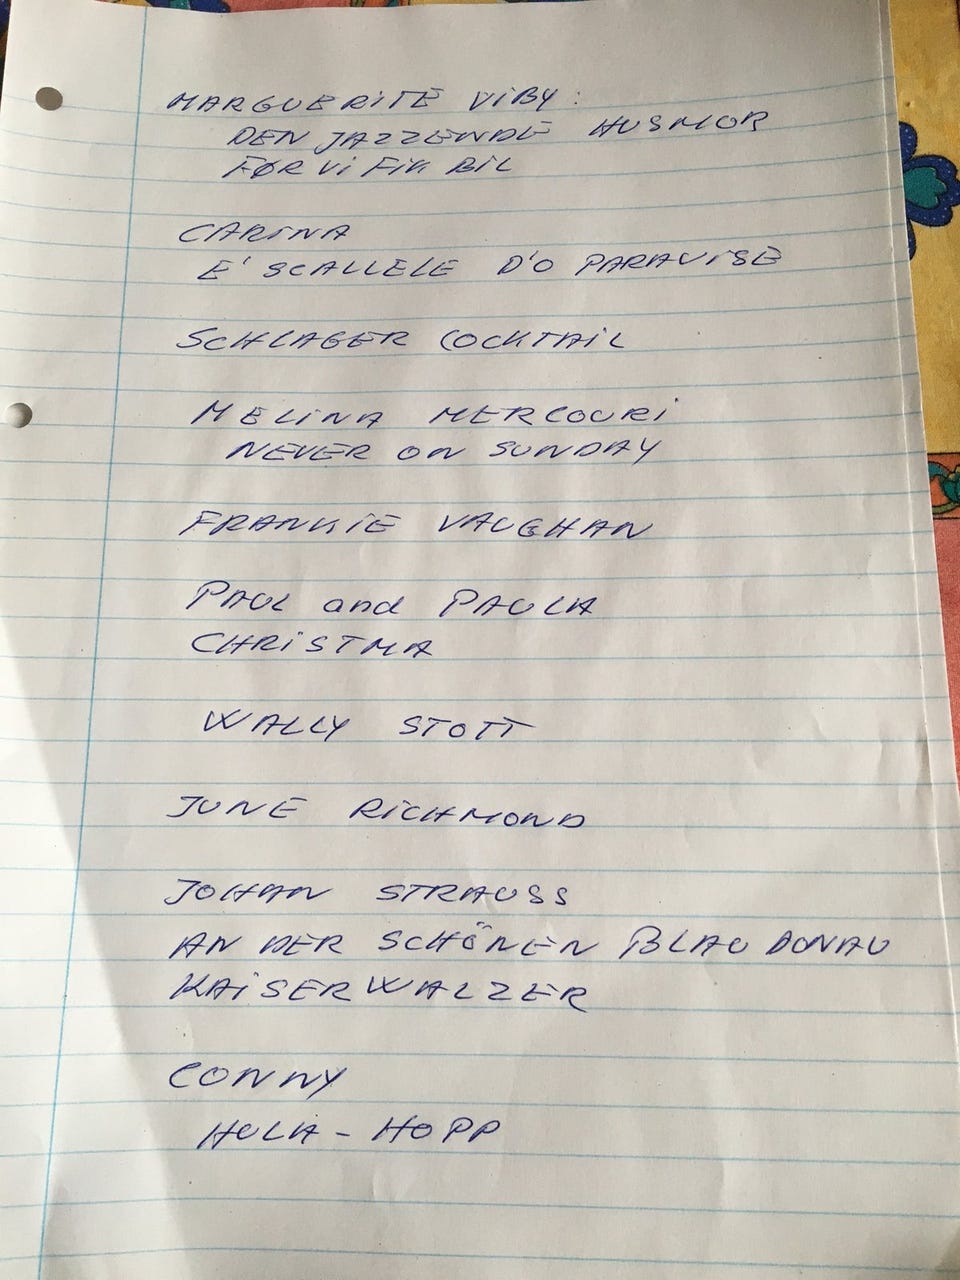 MARGUERITE VIBY:
DEN JAZZENDE HUSMOR
FØR VI FIK BIL
CARINA
E' SCALLELE D'O PARAVISE
SCHLAGER COCKTAIL
MELINA MERCOURI
NEVER ON SUNDAY
FRANKIE VAUGHAN
PAUL and PAULA
CHRISTMA
WALLY STOTT
JUNE RICHMOND
JOHAN STRAUSS
AN DER SCHÖNEN BLAU DONAU
KAISERWALZER
CONNY
HULA-HOPP